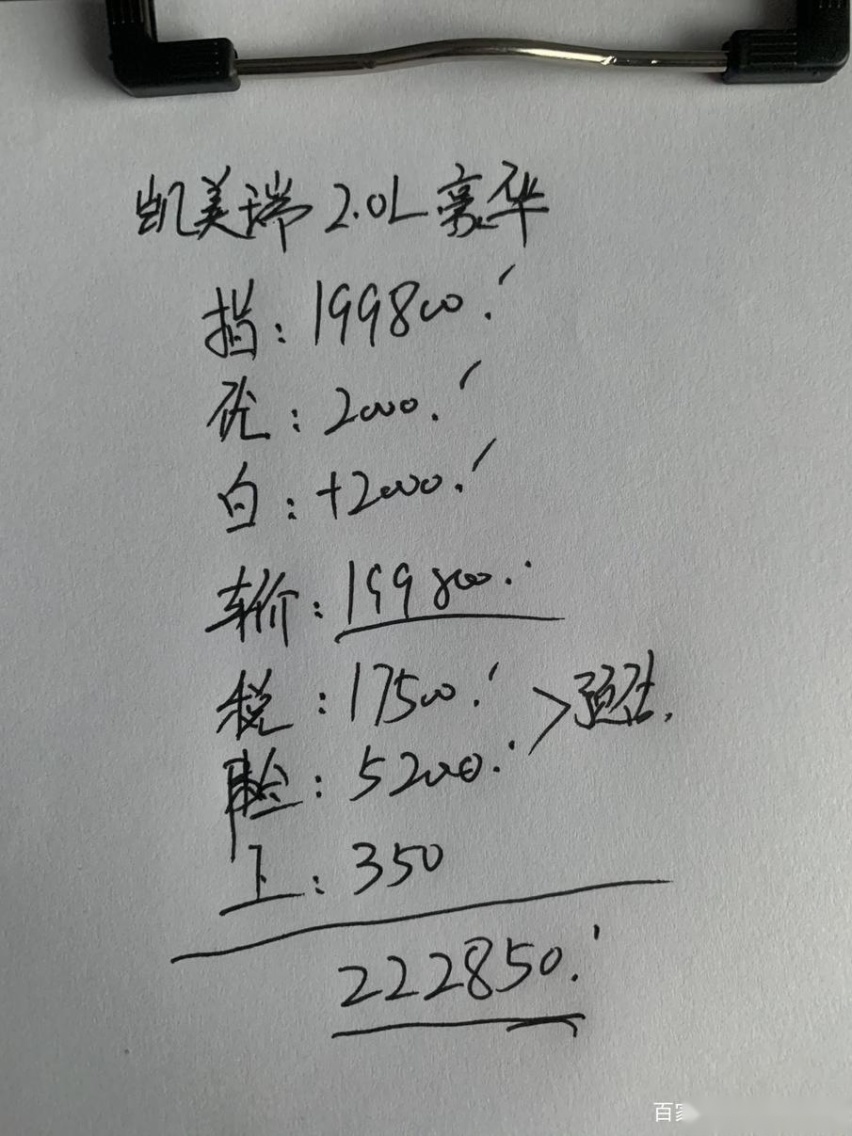 凯美瑞 2.0L 豪华
指: 199800.
优: 2000.
白: +2000.
车价: 199800.
税: 17500. > 预估.
险: 5200.
上: 350
222850.
百家